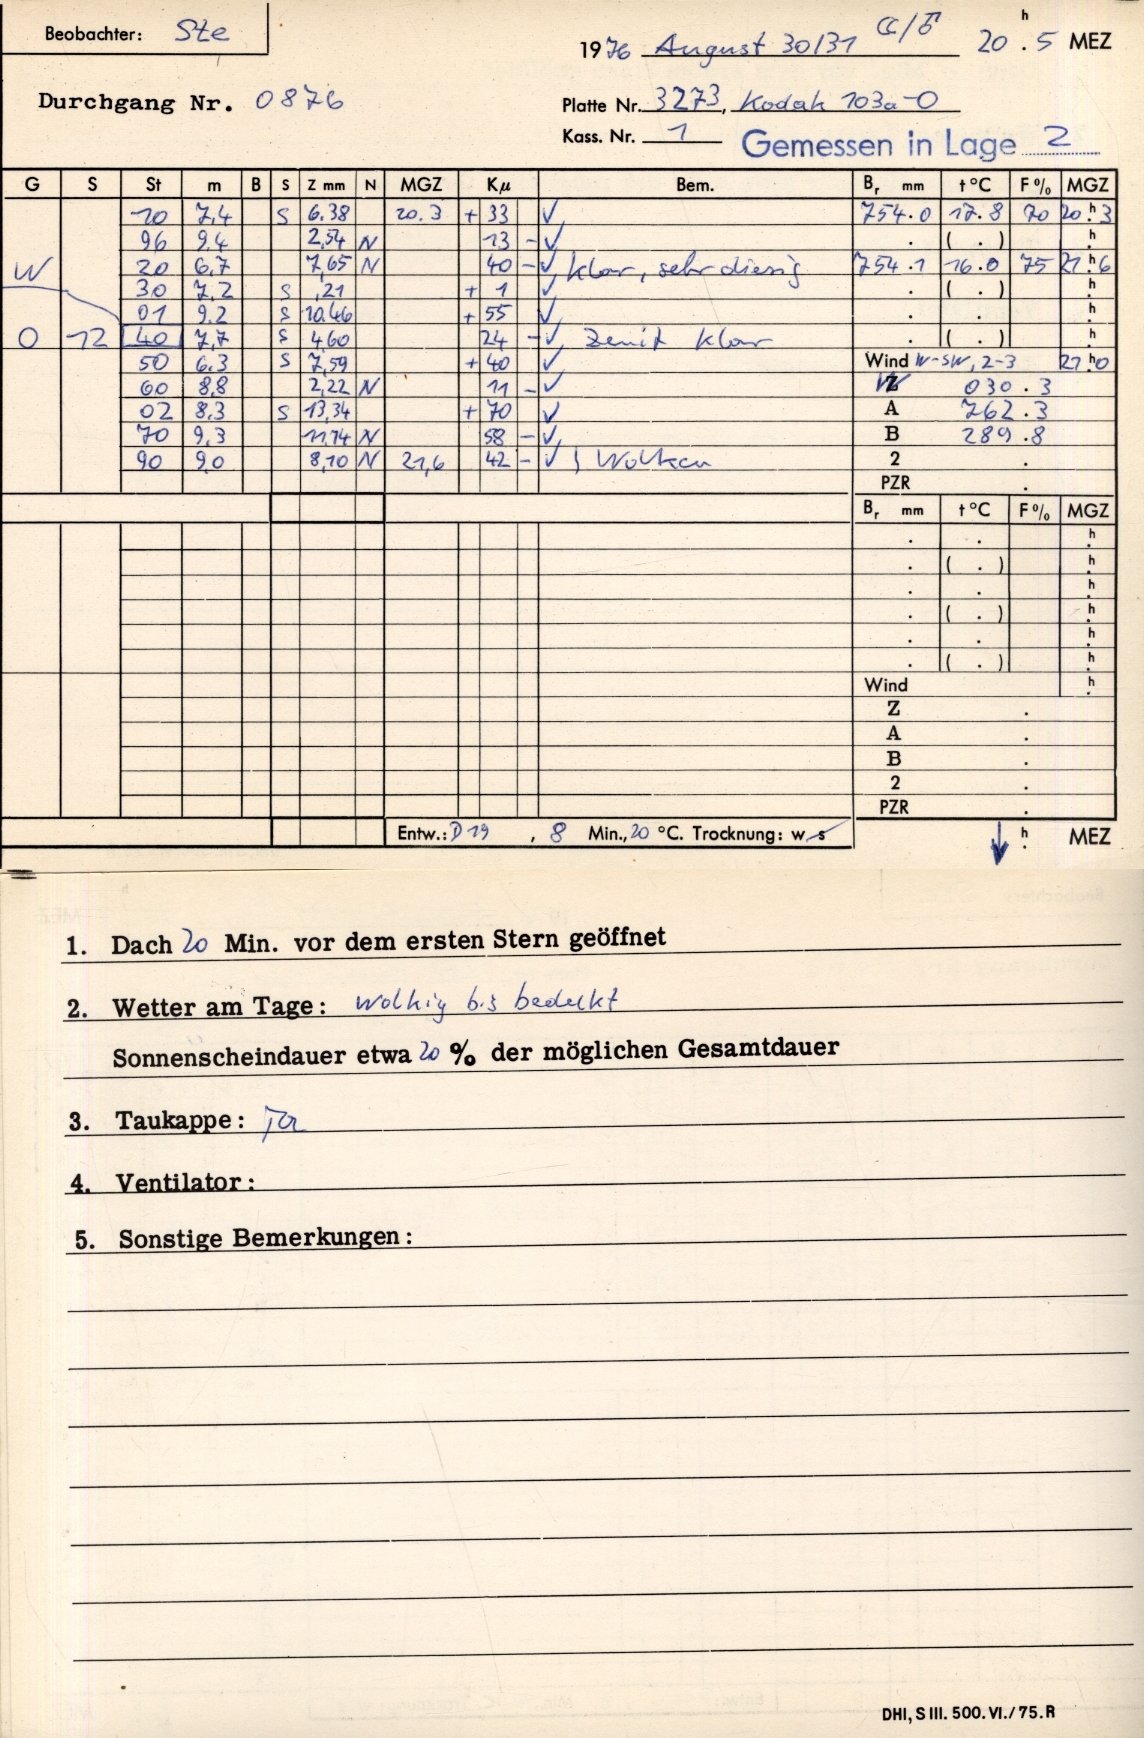 Beobachter: Ste
1976 August 30/31 20 h . 5 MEZ
Durchgang Nr. 0876
Platte Nr. 3273, Kodak 103a-O
Kass. Nr. 1 Gemessen in Lage 2
G S St m B S Z mm N MGZ Kμ Bem. Br mm t°C F% MGZ
10 7,4 S 6.38 20.3 + 33 ✓ 754.0 17.8 70 20.h3
96 9.4 2,54 N 13 - ✓ . ( . ) .h
W 20 6,7 7,65 N 40 - ✓ klar, sehr diesig 754.1 16.0 75 21.h6
30 7,2 S ,21 + 1 ✓ . ( . ) .h
01 9,2 S 10.46 + 55 ✓ . . .h
O 12 40 7,7 S 4,60 24 - ✓ Zenit klar . ( . ) .h
50 6,3 S 7,59 + 40 ✓ Wind W-SW, 2-3 21.h0
60 8,8 2,22 N 11 - ✓ Z 030.3
02 8,3 S 13,34 + 70 ✓ A 762.3
70 9,3 11,14 N 58 - ✓ B 289.8
90 9,0 8,10 N 21,6 42 - ✓ Wolken 2 .
PZR .
Br mm t°C F% MGZ
. . .h
. ( . ) .h
. . .h
. ( . ) .h
. . .h
. ( . ) .h
Wind .h
Z .
A .
B .
2 .
PZR .
Entw.: D 19 , 8 Min., 20 °C. Trocknung: w s
h . MEZ
1. Dach 20 Min. vor dem ersten Stern geöffnet
2. Wetter am Tage: wolkig bis bedeckt
Sonnenscheindauer etwa 20 % der möglichen Gesamtdauer
3. Taukappe: Ja
4. Ventilator:
5. Sonstige Bemerkungen:
DHI, S III. 500. VI./75. R